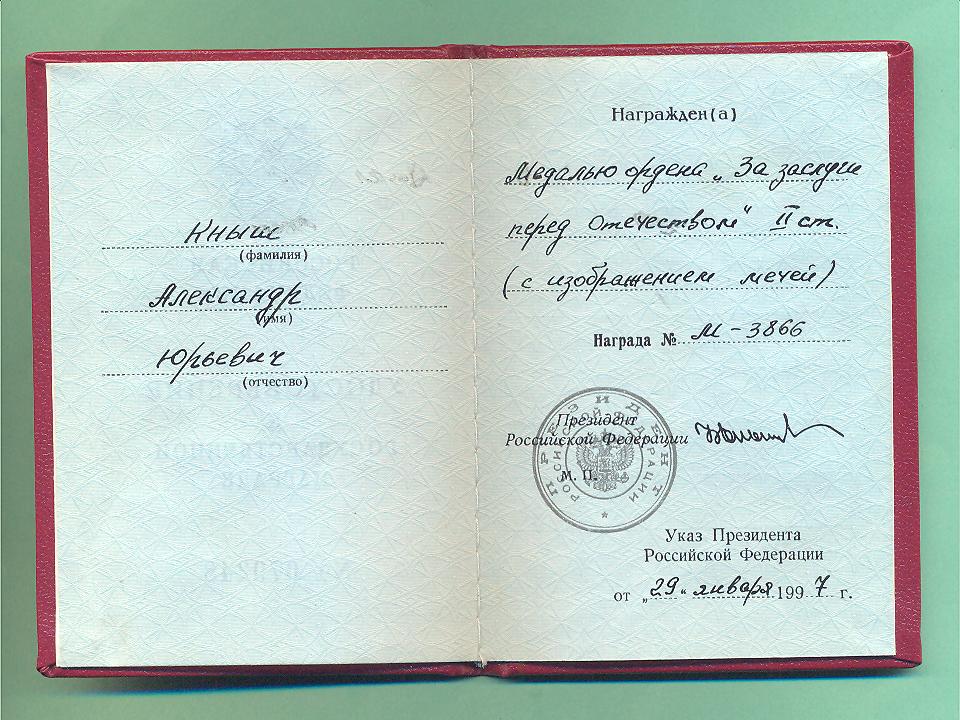 Кныш
(фамилия)
Александр
(имя)
Юрьевич
(отчество)
Награжден(а)
Медалью ордена „За заслуги
перед Отечеством" II ст.
(с изображением мечей)
Награда № М-3866
Президент
Российской Федерации
М. П.
ПРЕЗИДЕНТ
РОССИЙСКОЙ ФЕДЕРАЦИИ
Указ Президента
Российской Федерации
от „29" января 1997 г.